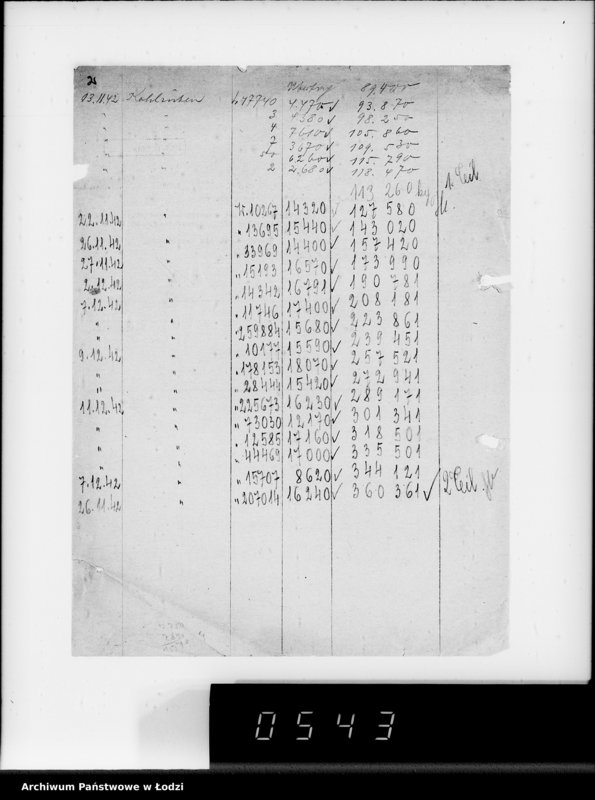 2
Übertrag 89.400
13.11.42 Kohlrüben 4.470 √ 93.870
" " 3 4380 √ 98.250
" " 4 7610 √ 105.860
" " 7 3670 √ 109.530
" " 50 6260 √ 115.790
" " 2 2.680 √ 118.470
113 260 kg 1. Teil
22.11.42 K.10267 14320 √ 127 580
" " 13695 15440 √ 143 020
26.11.42 " 33969 14400 √ 157 420
27.11.42 " " 15193 16570 √ 173 990
2.12.42 " " 14342 16791 √ 190 781
7.12.42 " " 11746 17400 √ 208 181
" " " 259884 15680 √ 223 861
" " " 10177 15590 √ 239 451
9.12.42 " " 178153 18070 √ 257 521
" " " 28444 15420 √ 272 941
11.12.42 " " 225673 16230 √ 289 171
" " " 73030 12170 √ 301 341
" " " 12585 17160 √ 318 501
" " " 44469 17000 √ 335 501
7.12.42 " " 15707 8620 √ 344 121
26.11.42 " " 207014 16240 √ 360 361 √ 2 Teil
0543
Archiwum Państwowe w Łodzi